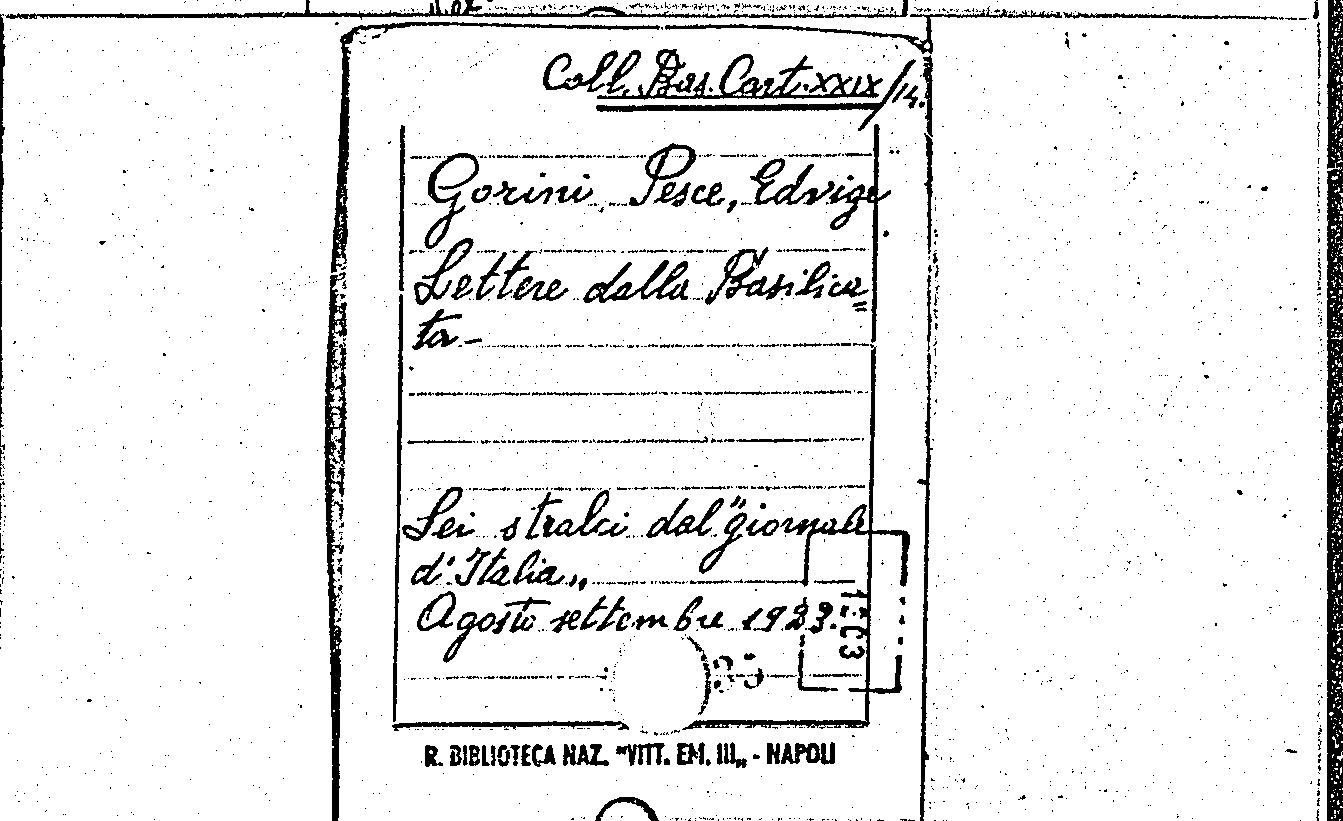 Coll. Bas. Cart. XXIX/14.
Gorini Pesce, Edvige
Lettere dalla Basilica=
ta-
Sei stralci dal "giornale
d'Italia„
Agosto settembre 1923.
R. BIBLIOTECA NAZ. "VITT. EM. III„ - NAPOLI